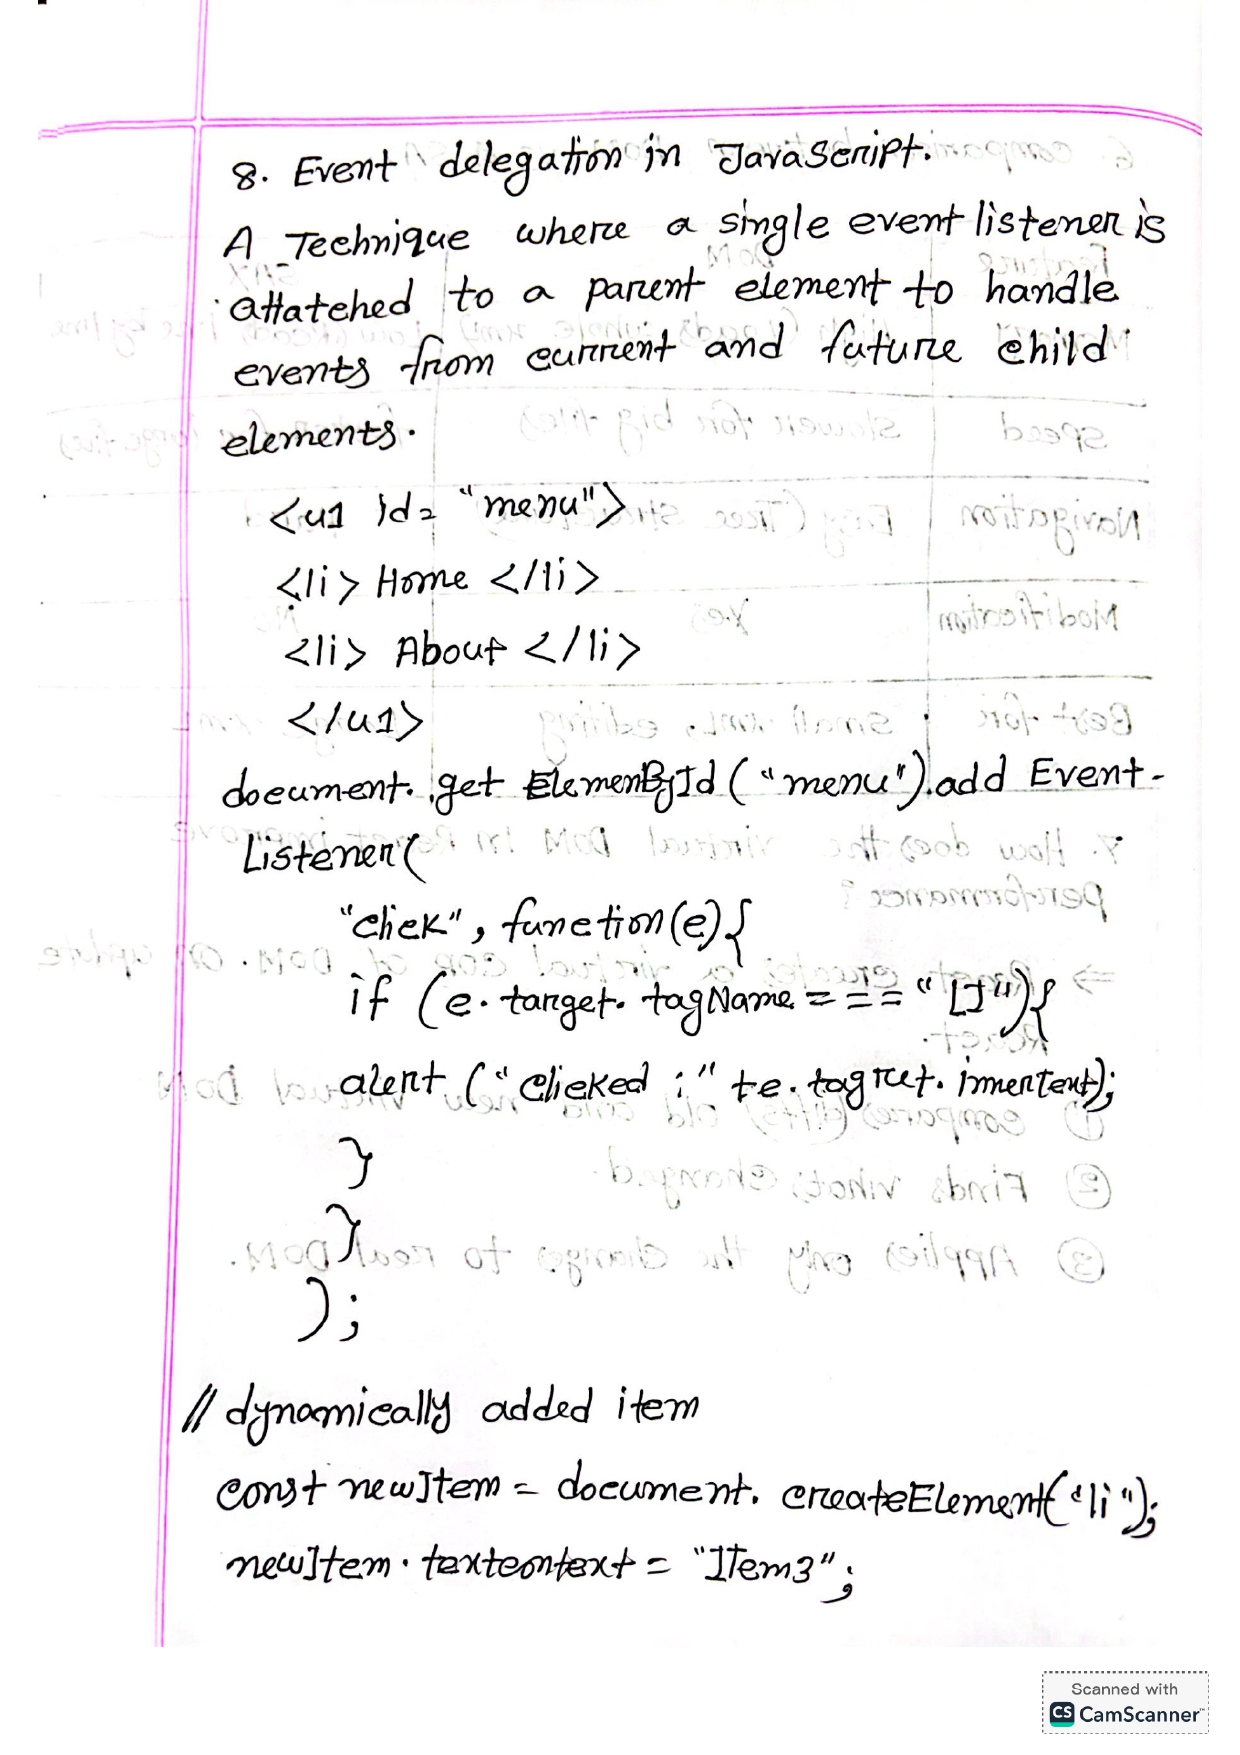 8. Event delegation in JavaScript.
A Technique where a single event listener is
attatched to a parent element to handle
events from current and future child
elements.
<ul id = "menu">
<li> Home </li>
<li> About </li>
</ul>
document. get ElemenById ("menu").add Event-
Listener(
"click", function(e){
if (e. target. tagName === "LI"){
alert ("clicked :" +e. tagret. innertext);
}
}
);
// dynamically added item
const newItem = document. createElement("li");
newItem. textcontext = "ITem3";
Scanned with
CS CamScanner